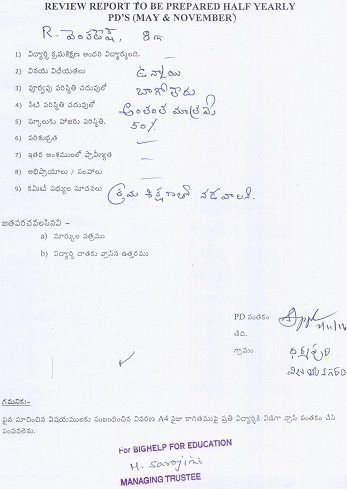 REVIEW REPORT TO BE PREPARED HALF YEARLY
PD'S (MAY & NOVEMBER)
R. వెంకటేష్,
1) విద్యార్థి క్రమశిక్షణ అందరి విద్యార్థులది. –
2) వినయ విధేయతలు ఉన్నాయి
3) పూర్వపు పరిస్థితి చదువులో బాగోలేదు
4) నేటి పరిస్థితి చదువులో అంతంత మాత్రమే
5) స్కూలుకు హాజరు పరిస్థితి. 50%
6) పరిశుభ్రత –
7) ఇతర అంశములలో ప్రావీణ్యత –
8) అభిప్రాయాలు / సలహాలు –
9) కమిటీ సభ్యుల సూచనలు క్రమ శిక్షణతో నడవాలి.
జతపరచవలసినవి –
a) మార్కుల పత్రము
b) విద్యార్థి చాతకు వ్రాసిన ఉత్తరము
PD సంతకం
తేది.
గ్రామం ధర్మపురి
విజయనగరం
గమనిక:-
పైన సూచించిన విషయములకు సంబంధించిన వివరణ A4 సైజు కాగితముపై ప్రతి విద్యార్థికి విడిగా వ్రాసి సంతకం చేసి
పంపవలెను.
For BIGHELP FOR EDUCATION
M. Sarojini
MANAGING TRUSTEE